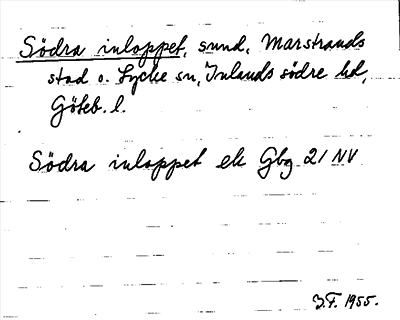 Södra inloppet, sund, Marstrands
stad o. Lycke sn, Inlands södre hd,
Göteb. l.
Södra inloppet ek Gbg 21 NV
J.F. 1955.